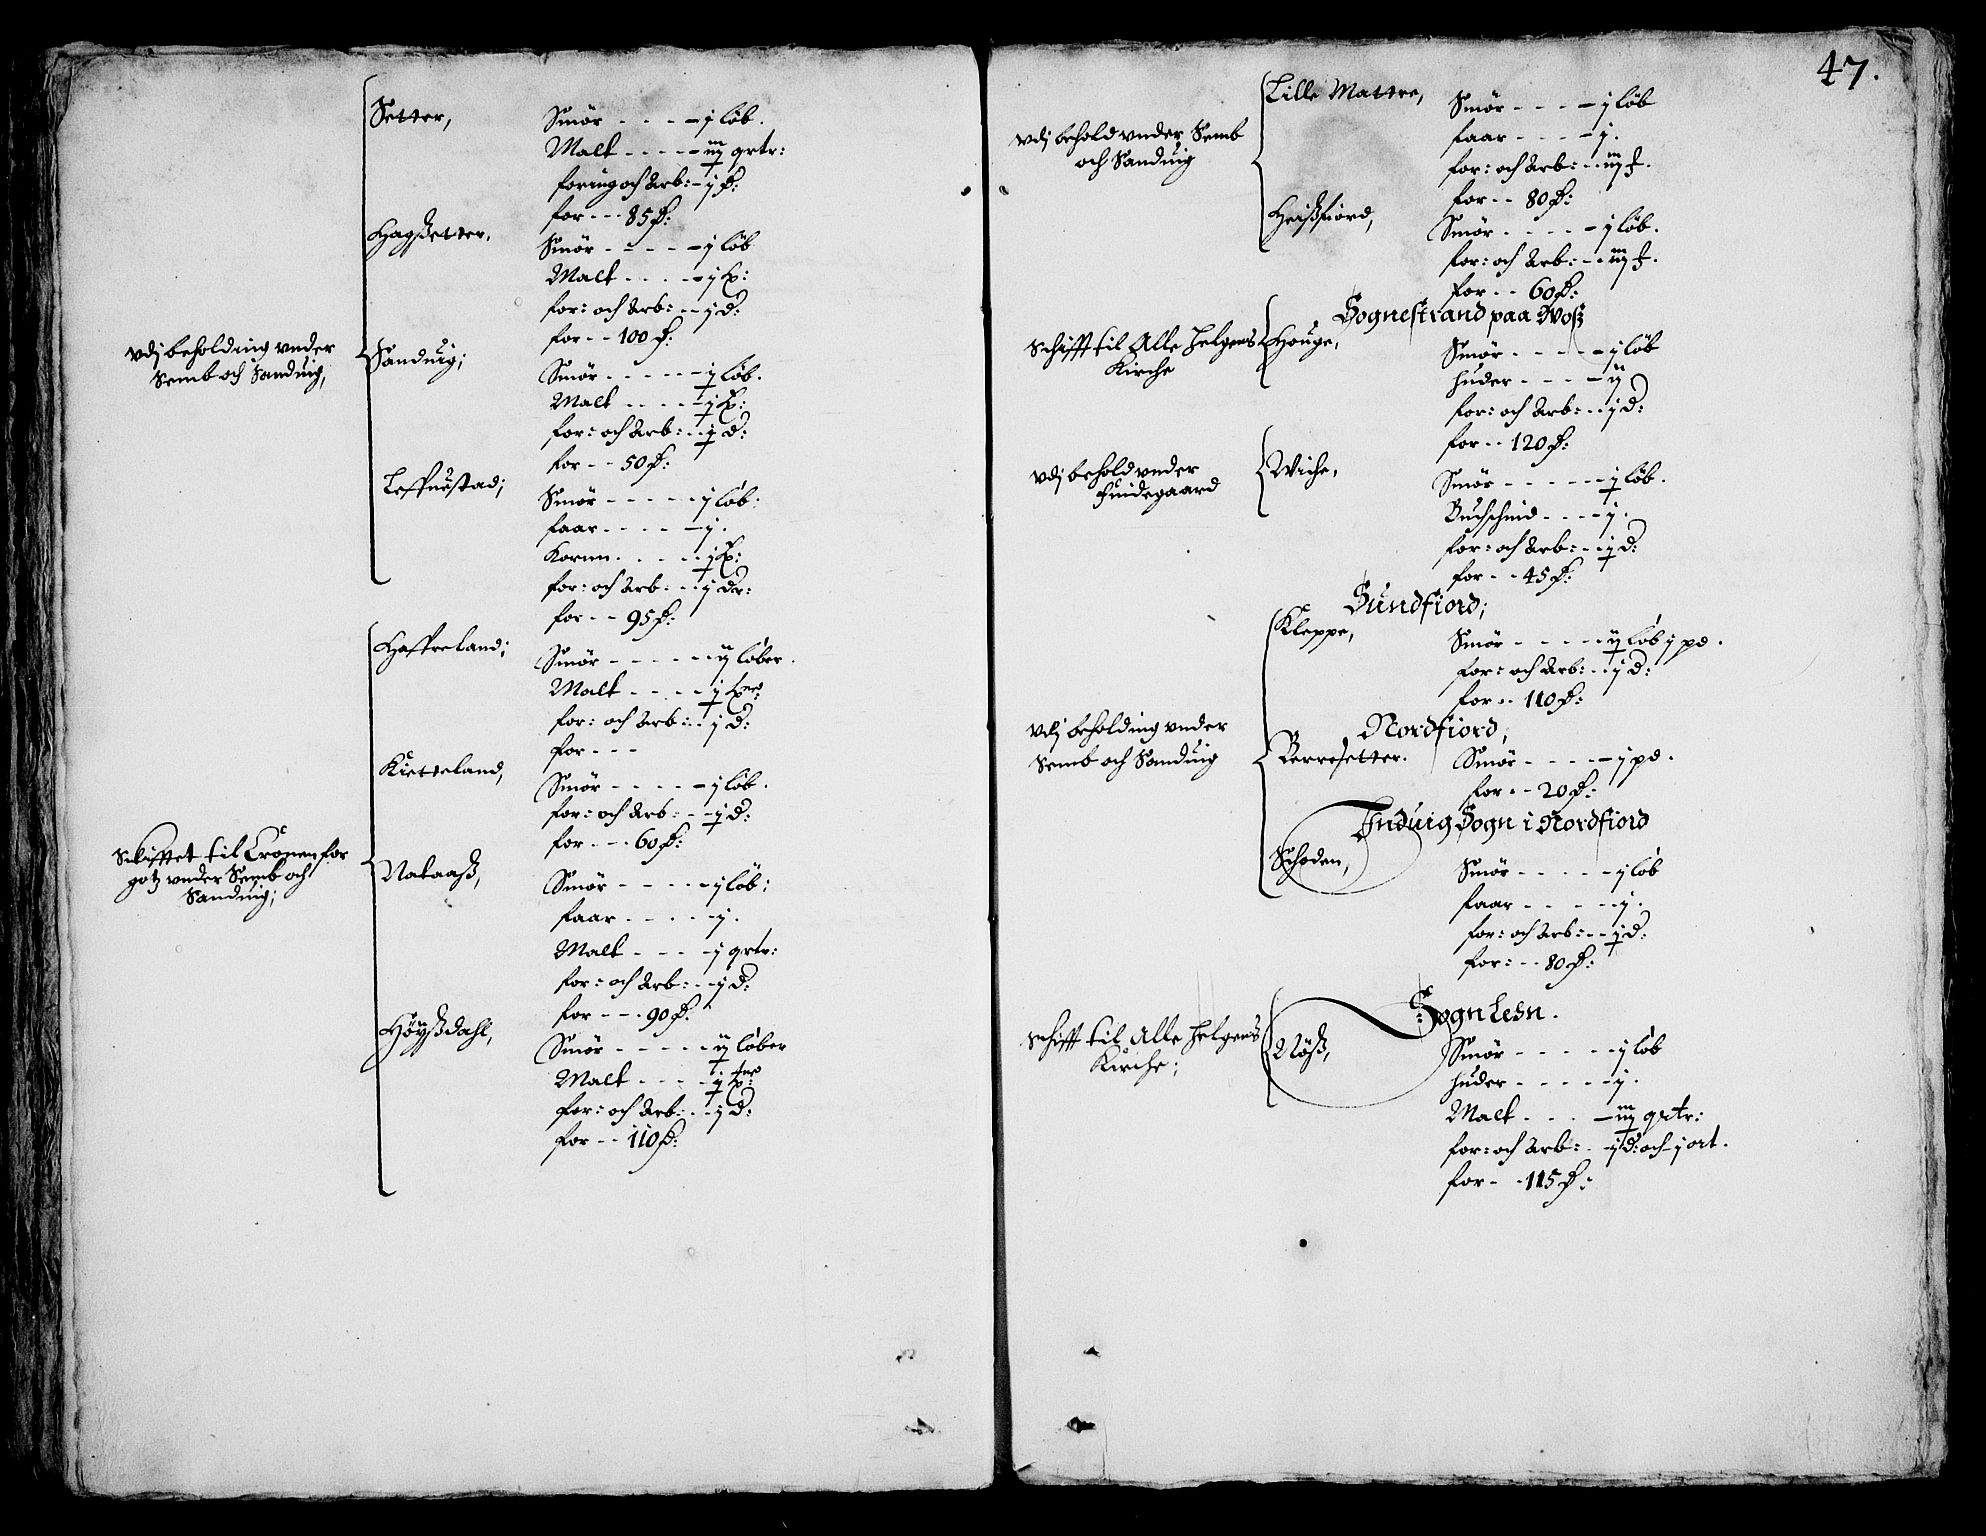 Setter,
Smör - - - - j löb.
Malt - - - - iij qrtr:
foring och Arb: - j ꝼ:
for - - - 85 ꝼ:
Hagßetter,
Smör - - - - j löb
Malt - - - - j
for: och Arb: - - j d:
for - - 100 ꝼ:
vdj beholding vnder
Semb och Sanduig,
Sanduig;
Smör - - - - - j löb.
Malt - - - - j
for: och Arb: - - j d:
for - - - 50 ꝼ:
Leffuestad;
Smör - - - - - j löb:
faar - - - - - j.
Kornn - - - - - j
for: och Arb: - - j dr:
for - - - 95 ꝼ:
Haffreland;
Smör - - - - - ij löber.
Malt - - - - j
for: och Arb: - - j d:
for - - -
Kietteland,
Smör - - - - - j löb.
for: och Arb: - - j d:
for - - - 60 ꝼ:
Skifftet til Cronen for
gotz vnder Semb och
Sanduig;
Nataaß,
Smör - - - - - j löb;
faar - - - - j.
Malt - - - - j qrtr:
for: och Arb: - - j d:
for - - - 90 ꝼ:
Höyßdahl,
Smör - - - - - ij löber
Malt - - - - j
for: och Arb: - - j d:
for - - 110 ꝼ:
47.
Lille Mattre,
Smör - - - - j löb
faar - - - - j.
for: och Arb: - - iij
for - - 80 ꝼ:
vdj behold vnder Semb
och Sanduig
Heißfiord,
Smör - - - - - j löb.
for: och Arb: - - iij
for - - 60 ꝼ:
Sognestrand paa Woß
Schifft til Alle Helgens
Kirche
Houge,
Smör - - - - - j löb
huder - - - - ij
for: och Arb: - - j d:
for - - 120 ꝼ:
vdj behold vnder
Huidegaard
Wiche,
Smör - - - - - - j löb.
Buchschind - - - - j.
for: och Arb: - - j d:
for - - - 45 ꝼ:
Sundfiord;
Kleppe,
Smör - - - - - ij löb j pd.
for: och Arb: - - j d:
for - - 110 ꝼ:
Nordfiord,
vdj beholding vnder
Semb och Sanduig
Berresetter.
Smör - - - - - j pd.
for - - 20 ꝼ:
Induig Sogn i Nordfiord
Schoden,
Smör - - - - - j löb
faar - - - - - j.
for: och Arb: - - j d:
for: - - 80 ꝼ:
Sogn Lehn.
Schifft til Alle Helgens
Kirche;
Nöß,
Smör - - - - - j löb
huder - - - - - j.
Malt - - - - iij qrtr:
for: och Arb: - - j d: och j ort.
for - - 115 ꝼ: